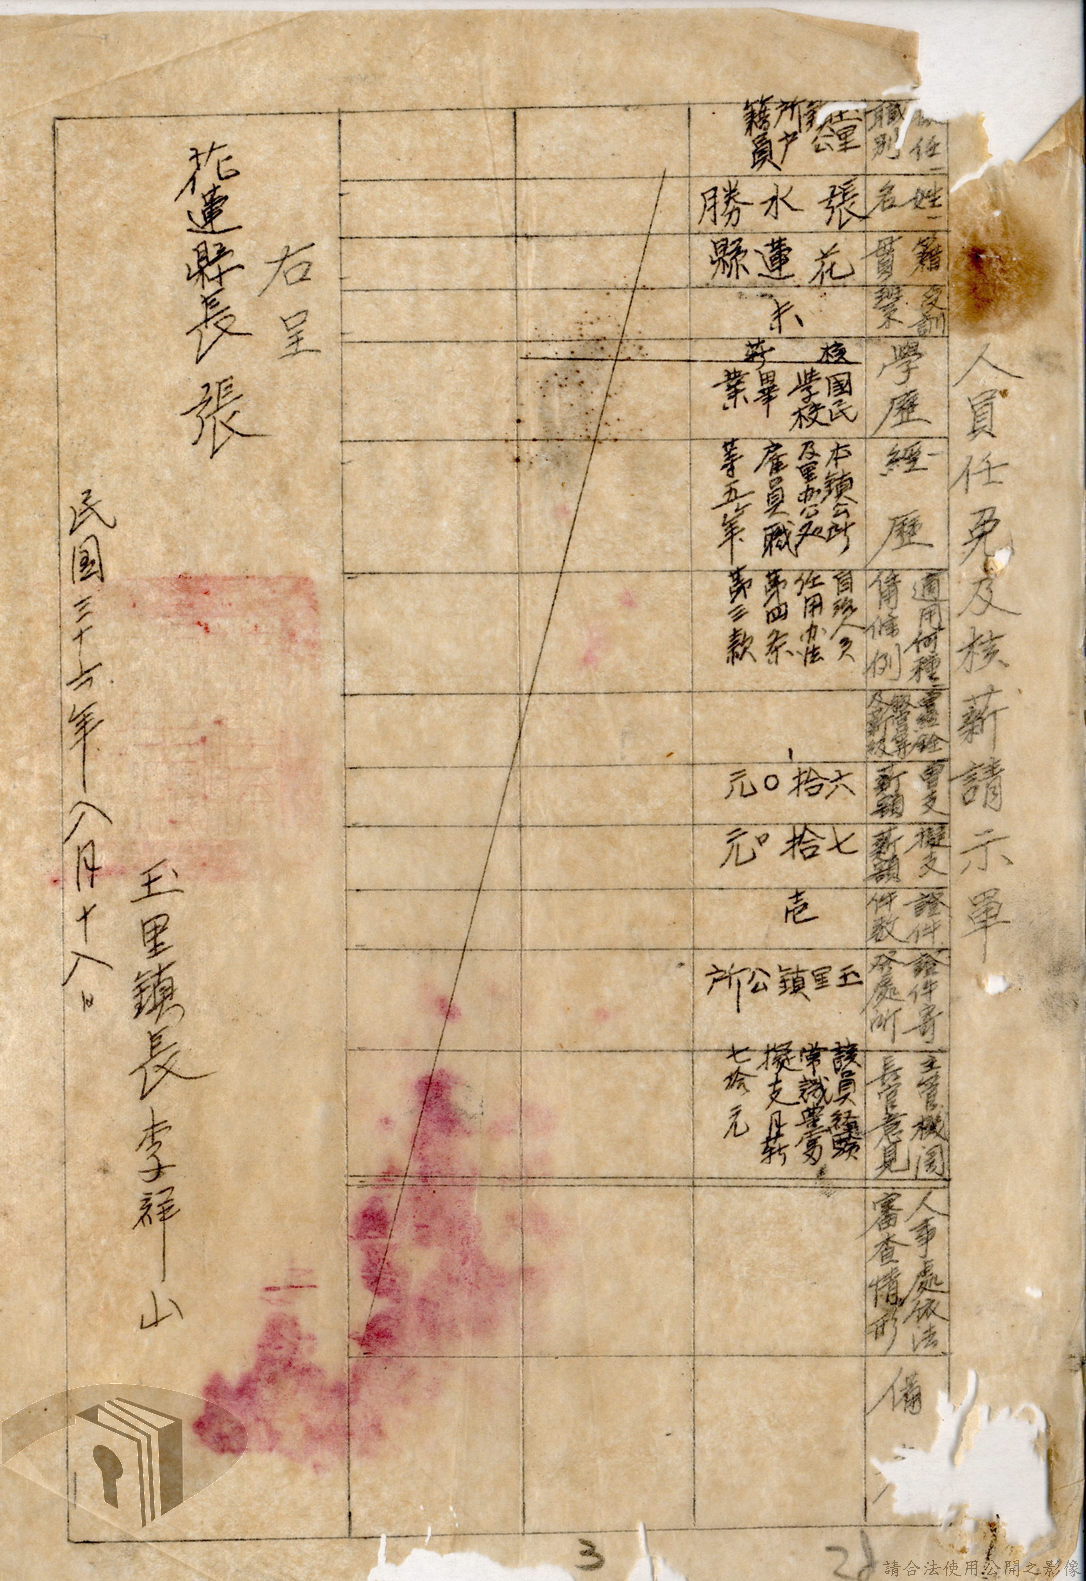 人員任免及核薪請示單
擬任
職別
姓
名
籍
貫
受訓
學歷
經歷
適用何種
條例
曾支
薪額
擬支
薪額
證件
件數
證件寄
發處所
主管機関
長官意見
人事處依法
審查情形
備
玉里
鎮公
所户
籍員
張水勝
花蓮縣
未
核薪
國民
學校
畢
業
本鎮公所
及里办公処
雇員職
等五年
自治人員
任用办法
第四条
第三款
六拾0元
七拾0元
壱
玉里鎮公所
該員経驗
常識豊富
擬支月薪
七拾元
右呈
花蓮縣長張
玉里鎮長李祥山
民国三十六年八月十八日
3
請合法使用公開之影像